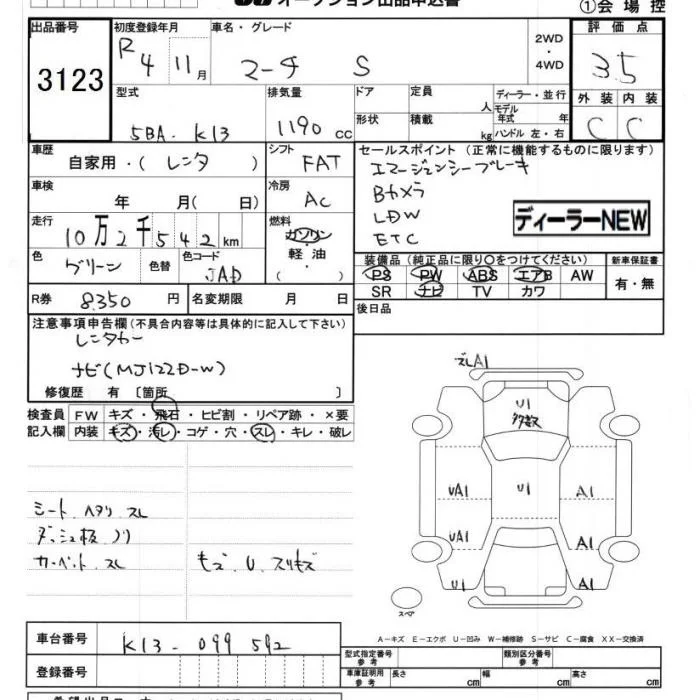 オークション出品申込書
①会場控
出品番号 3123
初度登録年月 R 4 11月
車名・グレード マーチ S
2WD・4WD
評価点 3.5
外装 内装 C C
型式 5BA-K13
排気量 1190cc
ドア 形状
定員 人 積載 kg
ディーラー・並行
モデル年式 年
ハンドル 左・右
車歴 自家用・(レンタ)
シフト FAT
車検 年 月(日)
冷房 AC
走行 10万2千542km
燃料 ガソリン 軽油 ( )
色 グリーン 色替 色コード JAD
R券 8350円 名変期限 月 日
セールスポイント(正常に機能するものに限ります)
エマージェンシーブレーキ
Bカメラ
LDW
ETC
ディーラーNEW
装備品(純正品に限り○をつけてください)
PS PW ABS エアB AW
SR ナビ TV カワ
新車保証書 有・無
後日品
注意事項申告欄(不具合内容等は具体的に記入して下さい)
レンタカー
ナビ(MJ122D-W)
修復歴 有 〔箇所 〕
検査員記入欄
FW キズ・飛石・ヒビ割・リペア跡・×要
内装 キズ・汚レ・コゲ・穴・スレ・キレ・破レ
シート ヘタリ スレ
ダッシュ板 ノリ
カーペット スレ
モズ.U.スリキズ
ズレA1
U1 多数
UA1 U1 A1
UA1 A1
U1 A1
スペア
A-キズ E-エクボ U-凹み W-補修跡 S-サビ C-腐食 XX-交換済
車台番号 K13-099592
登録番号
型式指定番号 参考 類別区分番号 参考
車庫証明用 参考 長さ cm 幅 cm 高さ cm